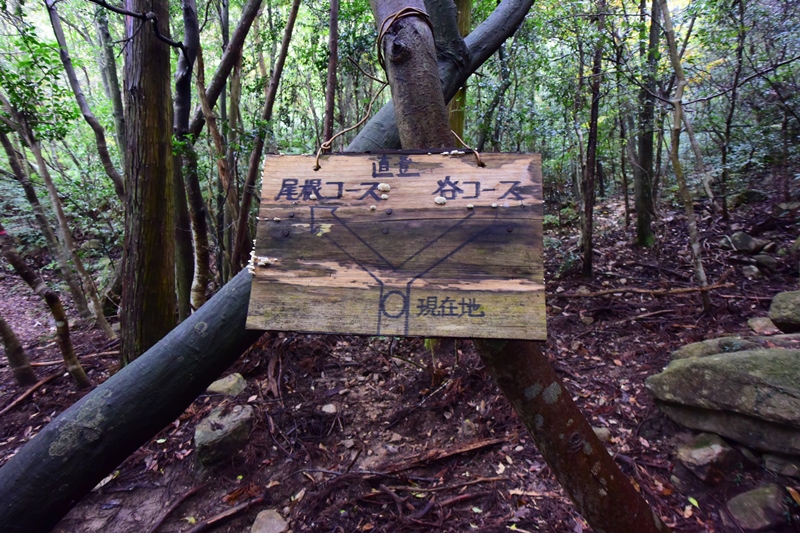 直登
尾根コース 谷コース
現在地